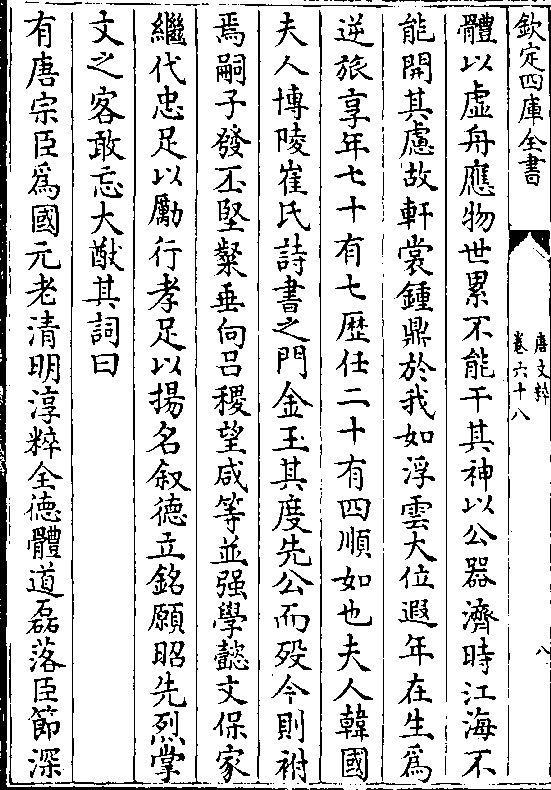 欽定四庫全書
唐文粹
卷六十八
八
體以虛舟應物世累不能干其神以公器濟時江海不
能開其慮故軒裳鍾鼎於我如浮雲大位遐年在生為
逆旅享年七十有七歴任二十有四順如也夫人韓國
夫人博陵崔氏詩書之門金玉其度先公而殁今則祔
焉嗣子發丕堅粲垂向吕稷望咸等並强學懿文保家
繼代忠足以勵行孝足以揚名叙德立銘願昭先烈掌
文之客敢忘大猷其詞曰
有唐宗臣為國元老清明淳粹全徳體道磊落臣節深